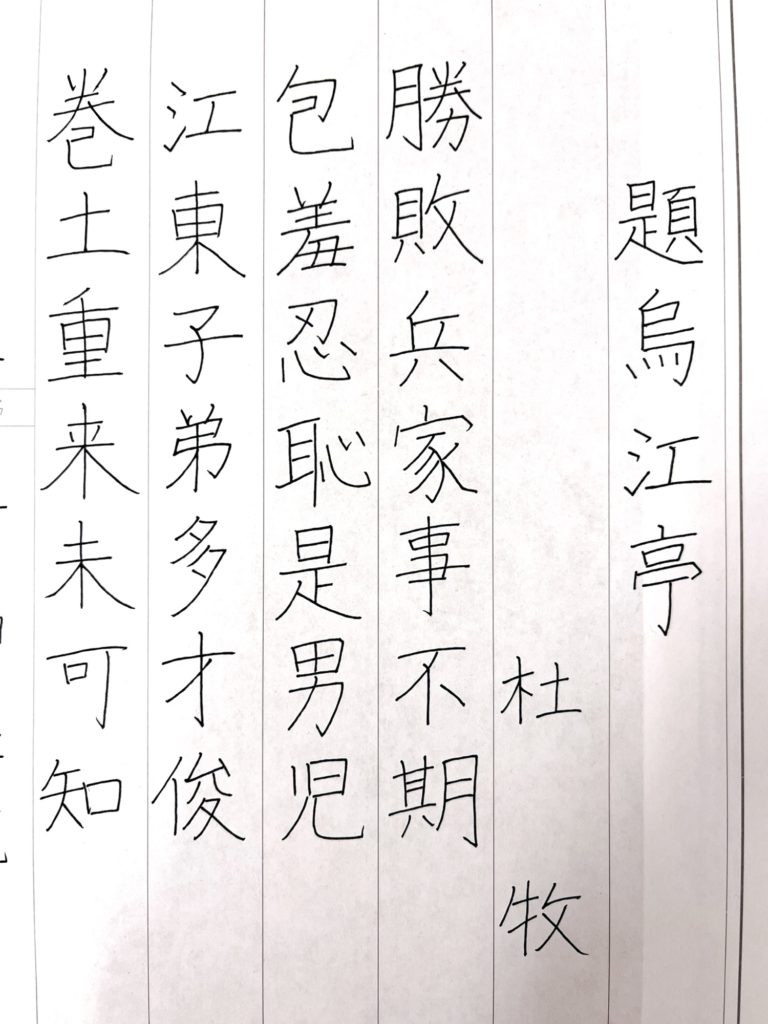 題烏江亭
杜牧
勝敗兵家事不期
包羞忍恥是男児
江東子弟多才俊
巻土重来未可知